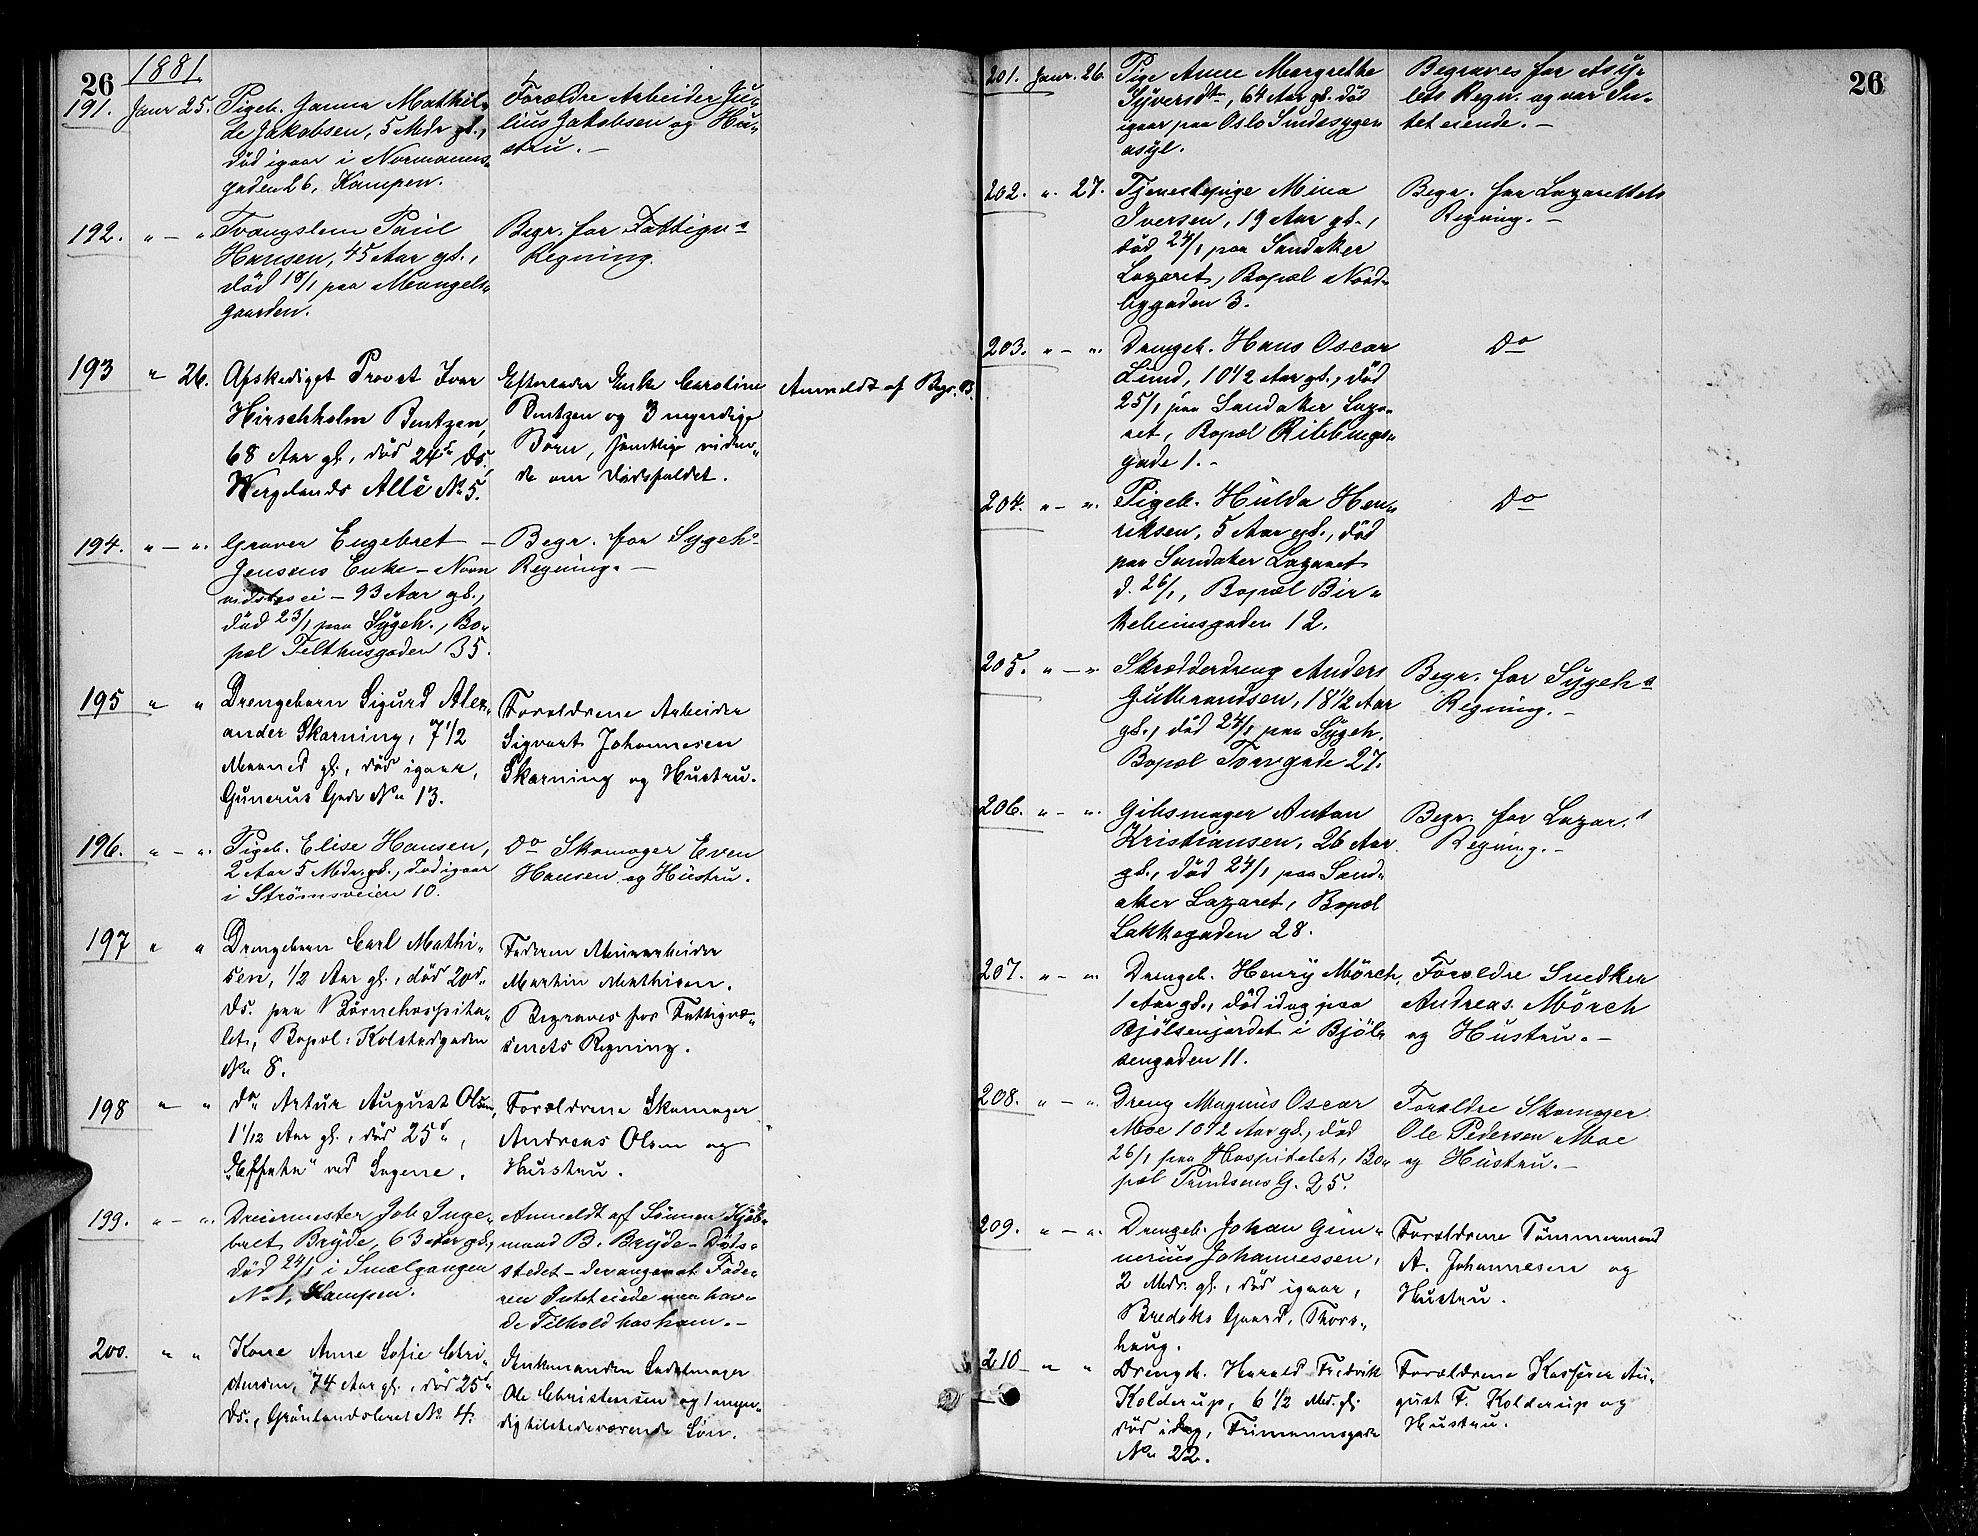 26
1881.
191. Janr 25. Pigeb. Janna Mathil-
de Jakobsen, 5 Mdr gl.,
död igaar i Normanns-
gaden 26, Kampen.
Forældre Arbeider Ju-
lius Jakobsen og Hu-
stru. –
192. " – " Tvangslem Paul
Hansen, 45 Aar gl.,
död 18/1 paa Mangels-
gaarden.
Begr. for Fattigv.s
Regning.
193 " 26. Afskediget Provst Ivar
Hirschholm Bentzen,
68 Aar gl., död 24de ds.,
Wergelands Allé No 5.
Efterlader Enke Caroline
Bentzen og 3 myndige
Börn, samtlige viden-
de om Dödsfaldet.
Anmeldt af Begr. B.
194. " – ". Graver Engebret
Jensens Enke – Navn
vidstes ei – 93 Aar gl.,
död 23/1 paa Sygeh., Bo-
pæl Telthusgaden 35.
Begr. for Sygeh.s
Regning. –
195 " " Drengebarn Sigurd Alex-
ander Skarning, 7 1/2
Maaned gl., död igaar,
Gunerus Gade No 13.
Forældrene Arbeider
Sigvart Johannesen
Skarning og Hustru.
196. " – ". Pigeb. Elise Hansen,
2 Aar 5 Mdr. gl., död igaar
i Strömsveien 10.
Do Skomager Even
Hansen og Hustru.
197 " " Drengebarn Carl Mathi-
sen, 1/2 Aar gl., död 20de
ds. paa Börnehospita-
let, Bopæl: Kolstadgaden
No 8.
Faderen Murarbeider
Martin Mathisen.
Begraves for Fattigvæ-
senets Regning.
198 " " do Artur August Olsen,
1 1/12 Aar gl., död 25de,
"Effata" ved Sagene.
Forældrene Skomager
Andreas Olsen og
Hustru.
199. " – ". Dreiermester Joh. Inge-
bret Bryde, 63 Aar gl.,
död 24/1 i Smalgangen
No 1, Kampen.
Anmeldt af Sönnen Kjöb-
mand B. Bryde – Döds-
stedet – der angav at Fade-
ren Intet eiede men hav-
de Tilhold hos ham. –
200. " " Kone Anne Sofie Chri-
stensen, 74 Aar gl., död 25de
ds., Grönlandsleret No 4.
Enkemanden Sadelmager
Ole Christensen og 1 myn-
dig tilstedeværende Sön.
26
201. Janr. 26. Pige Anne Margrethe
Syversdtr, 64 Aar gl. död
igaar paa Oslo Sindssyge-
asyl.
Begraves for Asy-
lets Regn. og var In-
tet eiende. –
202. " 27. Tjenestepige Mina
Iversen, 19 Aar gl.,
död 24/1 paa Sandaker
Lazaret, Bopæl Nord-
bygaden 3.
Begr. for Lazarettets
Regning. –
203. " – ". Drengeb. Hans Oscar
Lund, 10 1/2 Aar gl., död
25/1 paa Sandaker Laza-
ret, Bopæl Ribbungs-
gade 1. –
Do
204. " – ". Pigeb. Hulda Hen-
riksen, 5 Aar gl., död
paa Sandaker Lazaret
d. 26/1, Bopæl Bir-
kebeinsgaden 12.
Do
205. " – ". Skrædderdreng Anders
Gulbrandsen, 18 1/2 Aar
gl., död 24/1 paa Sygeh.
Bopæl Torvgade 27.
Begr. for Sygeh.s
Regning. –
206. " – ". Gibsmager Anton
Kristiansen, 26 Aar
gl., död 24/1 paa Sand-
aker Lazaret, Bopæl
Lakkegaden 28.
Begr. for Lazar.s
Regning. –
207. " – ". Drengeb. Henry Mörch,
1 Aar gl., död idag paa
Bjölsenjordet i Bjöl-
sengaden 11.
Forældre Snedker
Andreas Mörch
og Hustru. –
208. " – ". Dreng Magnus Oscar
Moe 10 1/2 Aar gl., död
26/1 paa Hospitalet, Bo-
pæl Trudsens G. 25.
Forældre Skomager
Ole Pedersen Moe
og Hustru. –
209. " – ". Drengeb. Johan Gun-
nerius Johannessen,
2 Mdr. gl., död igaar,
Bredoks Gaard, Thors-
haug.
Forældrene Tömmermand
A. Johannesen og
Hustru.
210 " " Drengeb. Harald Fredrik
Kolderup, 6 1/2 Md. gl.
död idag, Frimannsgade
No 22.
Forældrene Kasserer Au-
gust F. Kolderup og
Hustru.